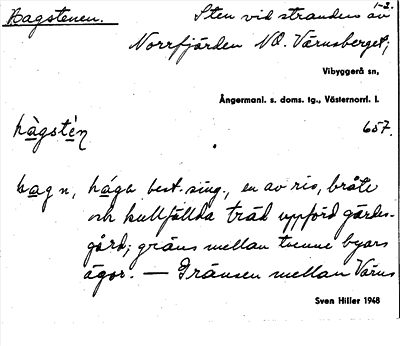 Bagstenen. Sten vid stranden av 1-2.
Norrfjärden NO. Värnsberget;
Vibyggerå sn,
Ångermanl. s. doms. tg., Västernorrl. l.
bàgstén 657.
bag n, bága best. sing., en av ris, bråte
och kullfällda träd uppförd gärdes-
gård; gräns mellan tvenne byars
ägor. — Gränsen mellan Värns
Sven Hiller 1948